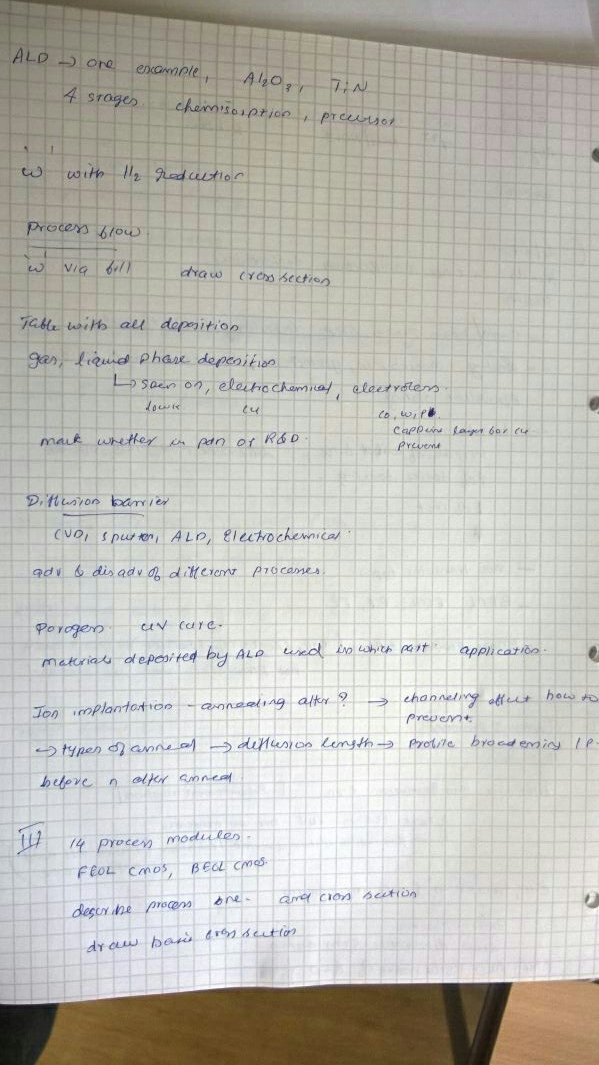 ALD → one example, Al2O3, TiN
4 stages chemisorption, precursor
'W' with H2 reduction
process flow
'W' via fill draw cross section
Table with all deposition
gas, liquid phase deposition
↳ spin on, electrochemical, electroless.
low k Cu Co, W, P
capping layer for Cu
prevent
mark whether in pdn or R&D.
Diffusion barrier
CVD, sputter, ALD, Electrochemical.
adv & disadv of different processes.
Porogen UV cure.
materials deposited by ALD used in which part application.
Ion implantation - annealing after? → channeling effect how to
prevent.
→ types of anneal → diffusion length → profile broadening I.P.
before n after anneal.
III 14 process modules.
FEOL CMOS, BEOL CMOS.
describe process one. and cross section
draw basic cross section